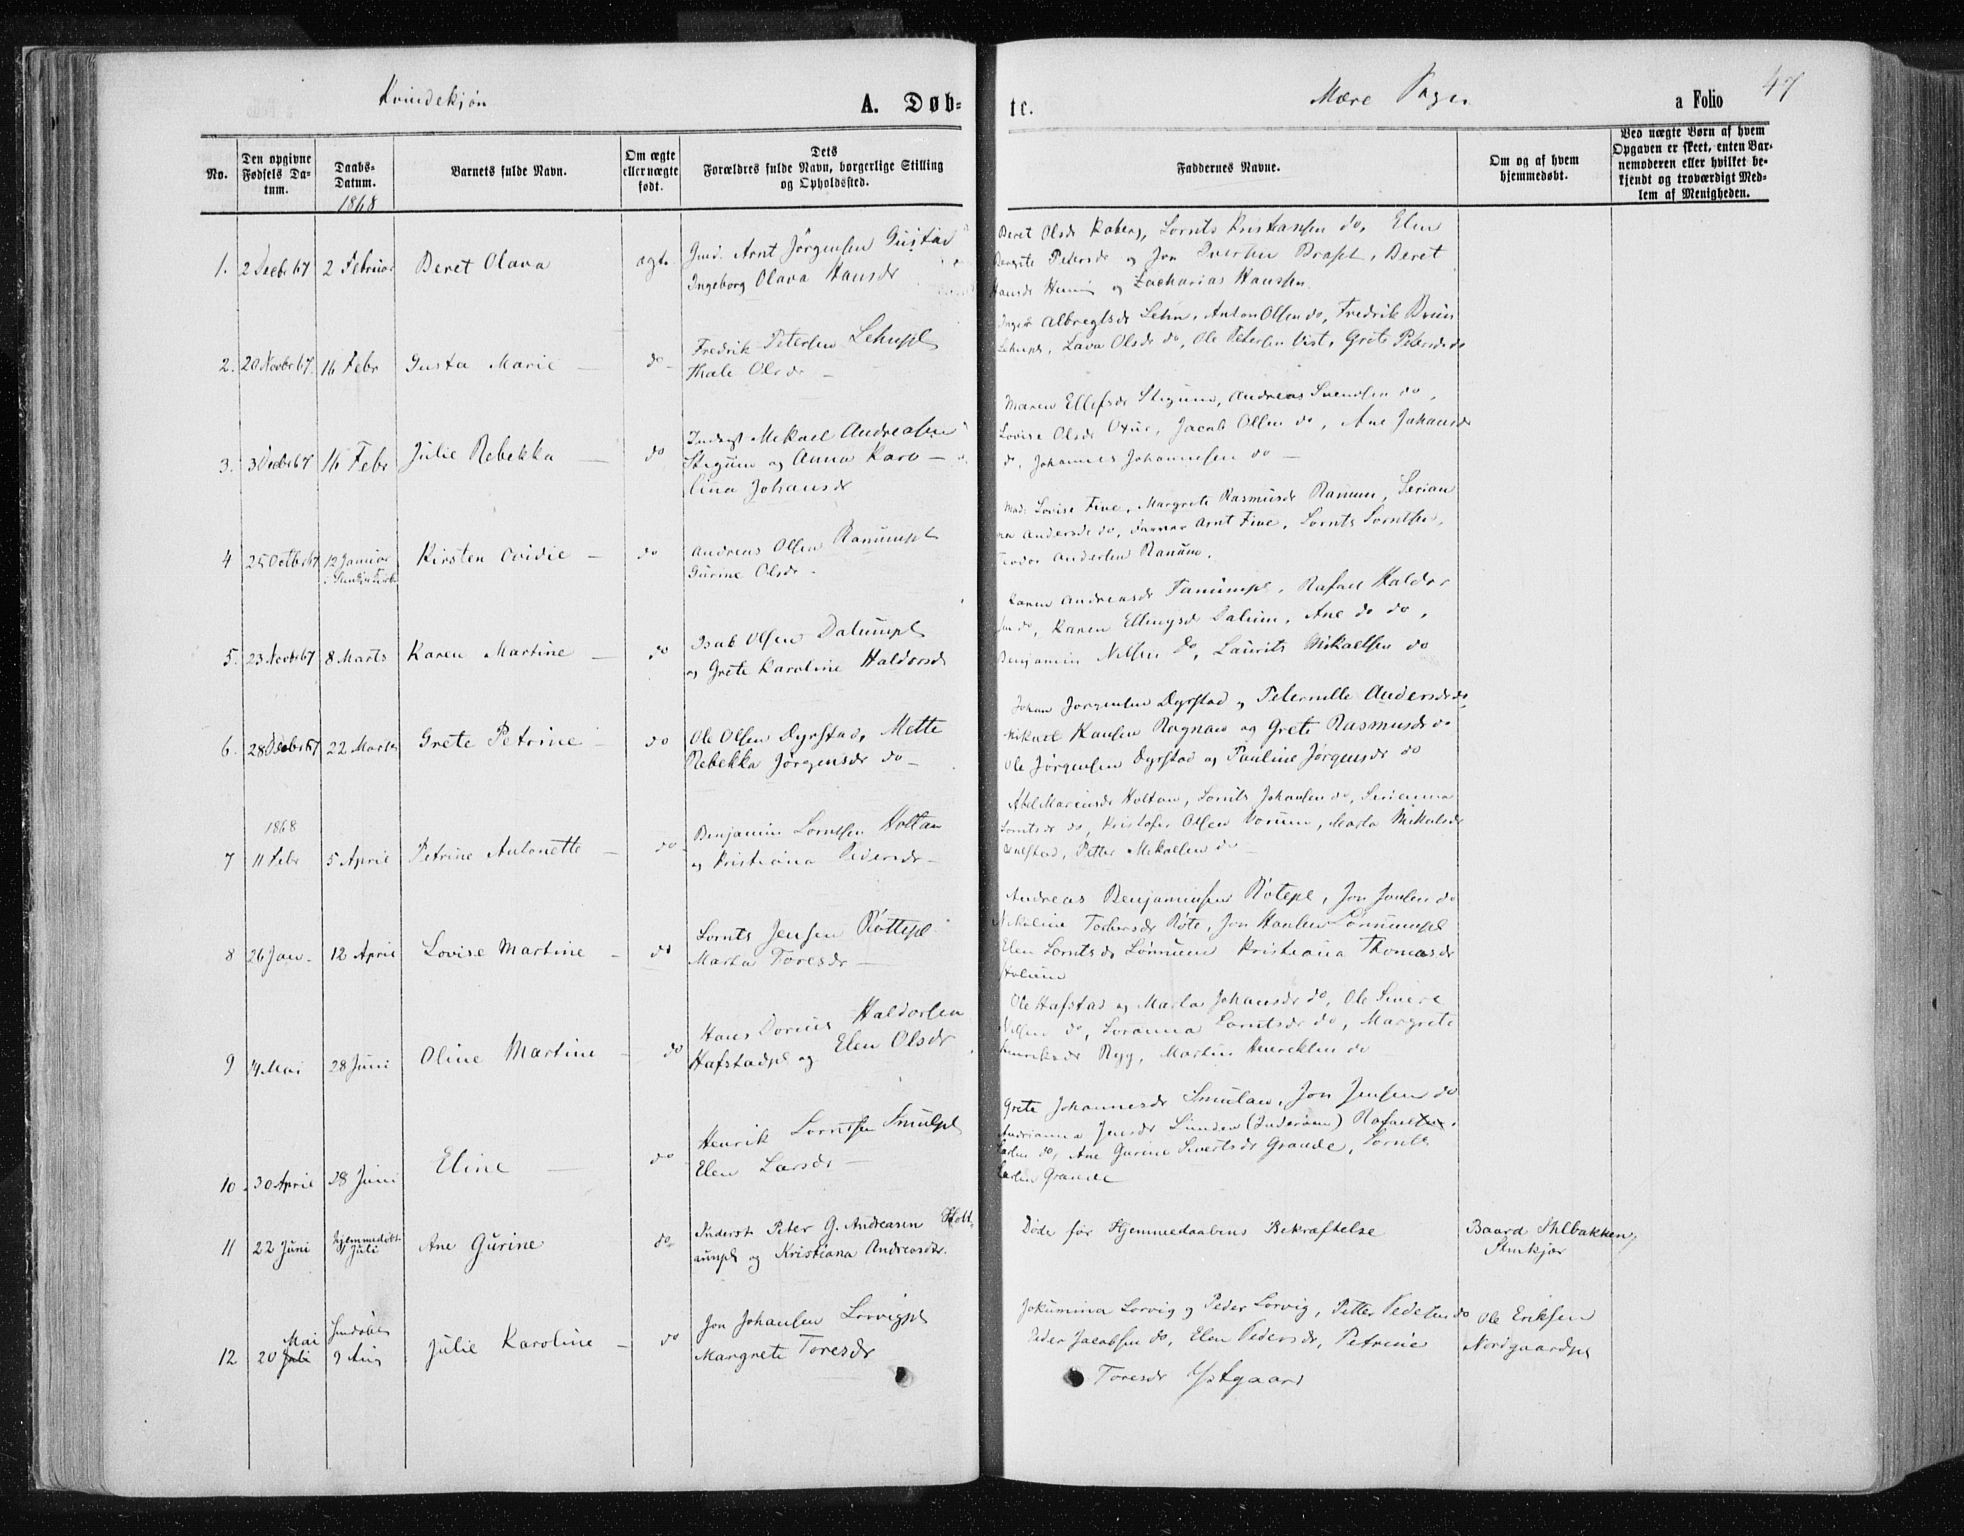 Kvindekjøn
A. Døb-
te.
Mære Sogn
a Folio
47
No.
Den opgivne Fødsels Da-tum.
Daabs-Datum.
1868
Barnets fulde Navn.
Om ægte eller uægte født.
Dets Forældres fulde Navn, borgerlige Stilling og Opholdssted.
Faddernes Navne.
Om og af hvem hjemmedøbt.
Ved uægte Børn af hvem Opgaven er skeet, enten Bar-nemoderen eller hvilket be-kjendt og troværdigt Med-lem af Menigheden.
1. 2 Decbr 67 2 Februar Beret Olava ægte
Arnt Jørgensen Gustad
Ingeborg Olava Hansdr
Beret Olsdr Koberg, Lornts Kristiansen do, Elen
Petersdr og Jon Braset, Beret
Hansdr og Zacharias Hanssen
2. 20 Novbr 67. 16 Febr Gusta Marie do
Fredrik Petersen Lehnpl
Thale Olsdr
Albregtsdr Lehn, Anton Olsen do, Fredrik
Lehnpl, Lava Olsdr do, Ole Petersen Vist, Grete Petersdr do
3. 3 Decbr 67 16 Febr Julie Rebekka do
Inderst Mekael Andreasen
Stigum og Anna Karo-
lina Johansdr
Maren Ellefsdr Stigum, Andreas Svendsen do,
Lovise Olsdr Oxur, Jacob Olsen do, Ane Johansdr
do, Johannes Johannesen do
4 25 Octbr 67 12 Januar Kirsten Ovidie do
Andreas Olsen Ranumpl
Gurine Olsdr
Mad: Lovise Five, Margrete Rasmusdr Ranum, Serian
na Andersdr do, Arnt Five, Lornts Lorntsen,
Andersen Ranum.
5. 23 Novbr 67 8 Marts Karen Martine do
Isak Olsen Dalumpl
og Grete Karoline Haldorsdr
Karen Andreasdr Tanumpl, Rafael Haldor
sen do, Karen Ellingsdr Dalum, Ane do do,
Benjamin Nilsen do, Laurits Mikaelsen do
6. 28 Decbr 67 22 Marts Grete Petrine do
Ole Olsen Dyrstad, Mette
Rebekka Jørgensdr do
Johan Jørgensen Dyrstad og Peternille Andersdr do,
Mikael Hansen Ragnaas og Grete Rasmusdr do
Ole Jørgensen Dyrstad og Pauline Jørgensdr do
1868
7 11 Febr 5 April Petrine Antonette do
Benjamin Lorntsen Holtan
og Kristiana Pedersdr
Abel Mariusdr Holtan, Lornts Johansen do, Serianna
Lorntsdr do, Kristofer Olsen Vorum, Marta Mikkelsdr
Petter Mikaelsen do
8 26 Jan. 12 April Lovise Martine do
Lornts Jensen Røttepl
Marta Toresdr
Andreas Benjaminsen Røtepl, Jon Jonsen do
Nikoline Todersdr Røte, Jon Hansen Lønnumpl
Elen Lorntsdr Lønnum Kristiana Thomasdr
9 4 Mai 28 Juni Oline Martine do
Hans Dorius Haldorsen
Hafstadpl og Elen Olsdr
Ole Hafstad og Marta Johansdr do, Ole Sivert
Nilsen do, Loranna Lorntsdr do, Margrete
Henriksdr Ryg, Martin Henriksen do
10. 30 April 28 Juni Eline do
Henrik Lorntsen Smulpl
Elen Larsdr
Grete Johannesdr Smulan, Jon Jensen do
Andrianna Jensdr Sunden (Inderøen) Rafael
Larsen do, Ane Gurine Sivertsdr Grande, Lornts
Larsen Grande
11 22 Juni hjemmedøbt
1 Juli Ane Gurine do
Inderst Peter G. Andreasen Holt
aunpl og Kristiana Andreasdr.
Døde før Hjemmedaabens Bekræftelse
Baard Ihlbakken,
Stenkjær
12 20 Mai Juli 9 Aug Julie Karoline do
Jon Johansen Lorvigpl
Margrete Toresdr
Jokumina Lorvig og Peder Lorvig, Petter Pedersen do
Peder Jacobsen do, Elen Pedersdr, Petrine
Toresdr Ystgaard
Ole Eriksen
Nordgaardpl